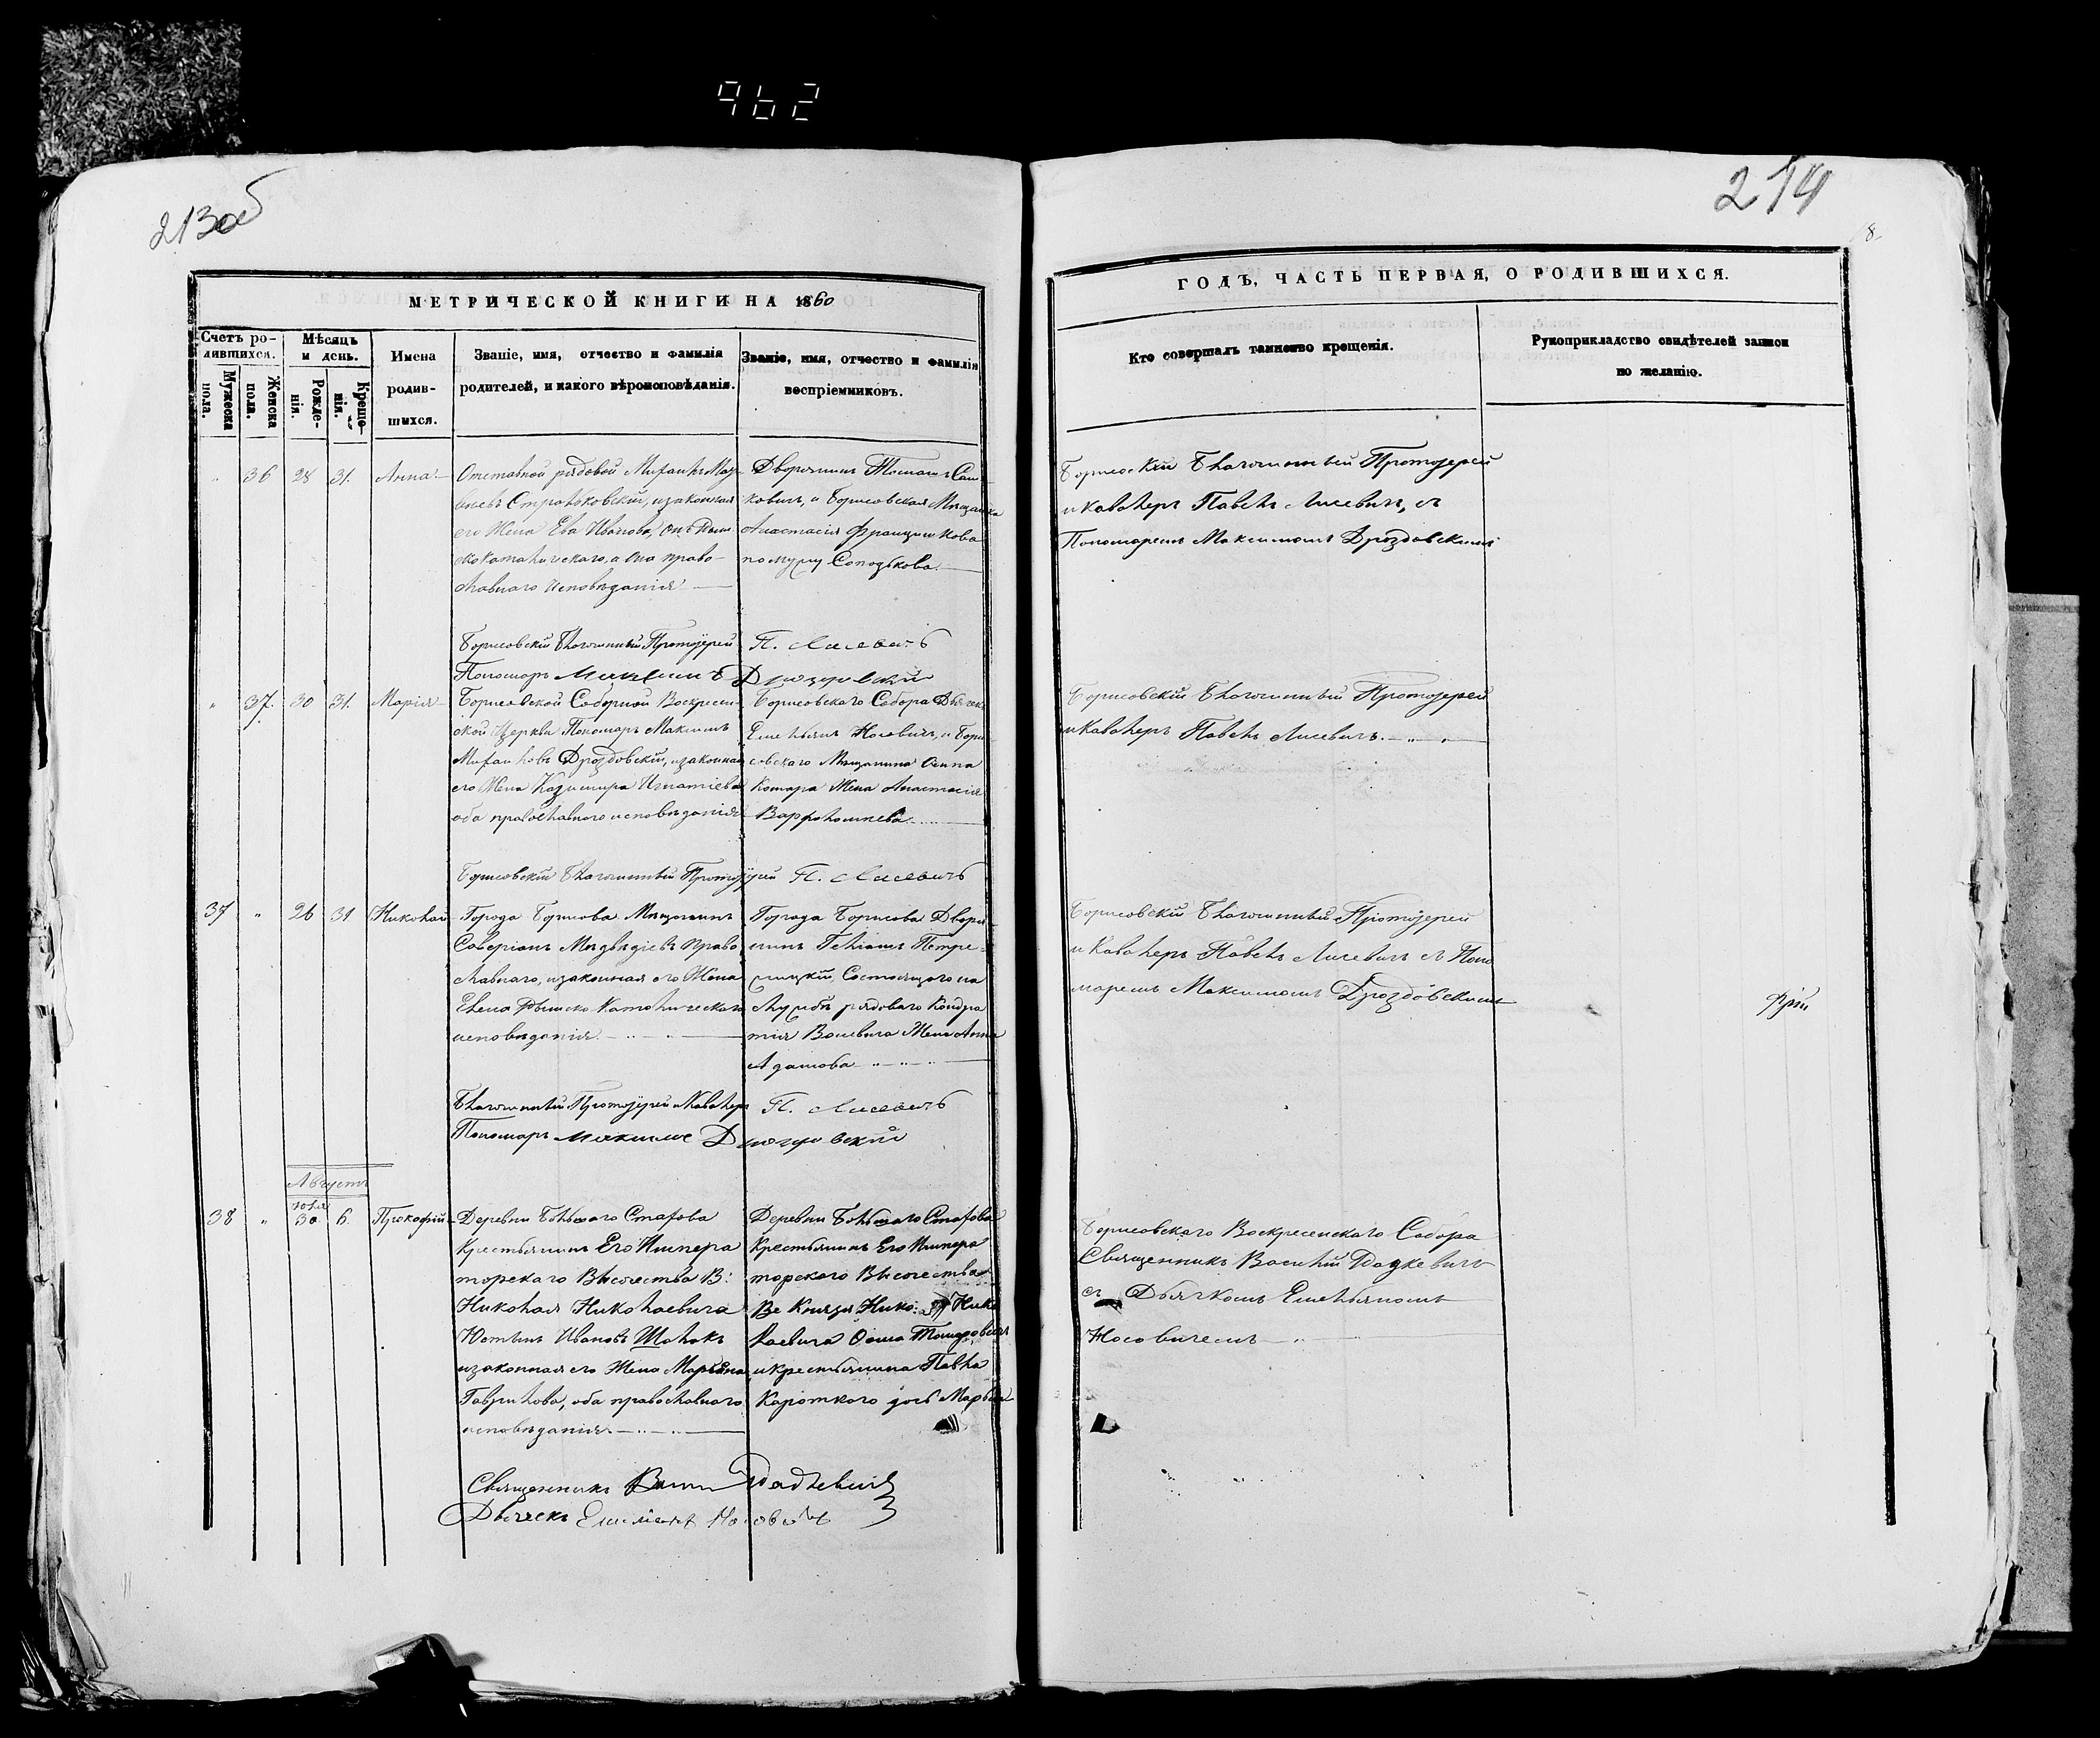 962
213об
214
8.
МЕТРИЧЕСКОЙ КНИГИ НА 1860
ГОДЪ, ЧАСТЬ ПЕРВАЯ, О РОДИВШИХСЯ.
Счетъ ро-
дившихся.
Мужеска
пола.
Женска
пола.
Мѣсяцъ
и день.
Рожде-
нія.
Креще-
нія.
Имена
родив-
шихся.
Званіе, имя, отчество и фамилія
родителей, и какого вѣроисповѣданія.
Званіе, имя, отчество и фамилія
воспріемниковъ.
Кто совершалъ таинство крещенія.
Рукоприкладство свидѣтелей записи
по желанію.
" 36 28 31. Анна
Отставной рядовой Михаилъ
изаконная
его Жена Ева Иванова, онъ Рим
скокатолическаго, а она право-
славнаго исповѣданія
Дворянинъ Томашъ Сан
ковичъ, и Борисовская Мѣщанка
Анастасія Францишкова
по мужу
Борисовскій Благочинный Протоіерей
и Кавалеръ Павелъ Лисевичъ, съ
Пономаремъ Максимомъ Дроздовскимъ
Борисовскій Благочинный Протоіерей П. Лисевичъ
Пономарь Максимъ Дроздовскій
" 37. 30 31. Марія
Борисовской Соборной Воскресен
ской Церкви Пономарь Максимъ
Михайловъ Дроздовскій, изаконная
его Жена Казимира Игнатіева
оба православнаго исповѣданія
Борисовскаго Собора Дьячекъ
Емельянъ Носовичъ, и Бори
совскаго Мѣщанина Осипа
Комара Жена Анастасія
Варфоломеева
Борисовскій Благочинный Протоіерей
и Кавалеръ Павелъ Лисевичъ.
Борисовскій Благочинный Протоіерей П. Лисевичъ
37 " 26 31 Николай
Города Борисова Мѣщанинъ
Саверіанъ Медвѣдіевъ право
славнаго, изаконная его Жена
Елена Римско-Католическаго
исповѣданія
Города Борисова Дворя
нинъ Петре
Состоящаго на
службѣ рядоваго Кондра
тія Жена Анна
Адамова
Борисовскій Благочинный Протоіерей
и Кавалеръ Павелъ Лисевичъ съ Поно
маремъ Максимомъ Дроздовскимъ
Благочинный Протоіерей и Кавалеръ П. Лисевичъ
Пономарь Максимъ Дроздовскій
Августъ
38 " Юля 30 6. Прокофій
Деревни Большаго Стахова
Крестьянинъ Его Импера
торскаго Высочества В:
Николая Николаевича
Юстынъ Ивановъ Шалакъ
изаконная его Жена Марьяна
Гаврилова, оба православнаго
исповѣданія
Деревни Большаго Стахова
Крестьянинъ Его Импера
торскаго Высочества
Ве Князя Нико: Нико
лаевича Фома
и крестьянина Павла
Короткаго дочь Марьяна
Борисовскаго Воскресенскаго Собора
Священникъ Василій Дадкевичъ
съ Дьячкомъ Емельяномъ
Носовичемъ
Священникъ Васил Дадкевичъ
Дьячекъ Емеліанъ Носовичъ